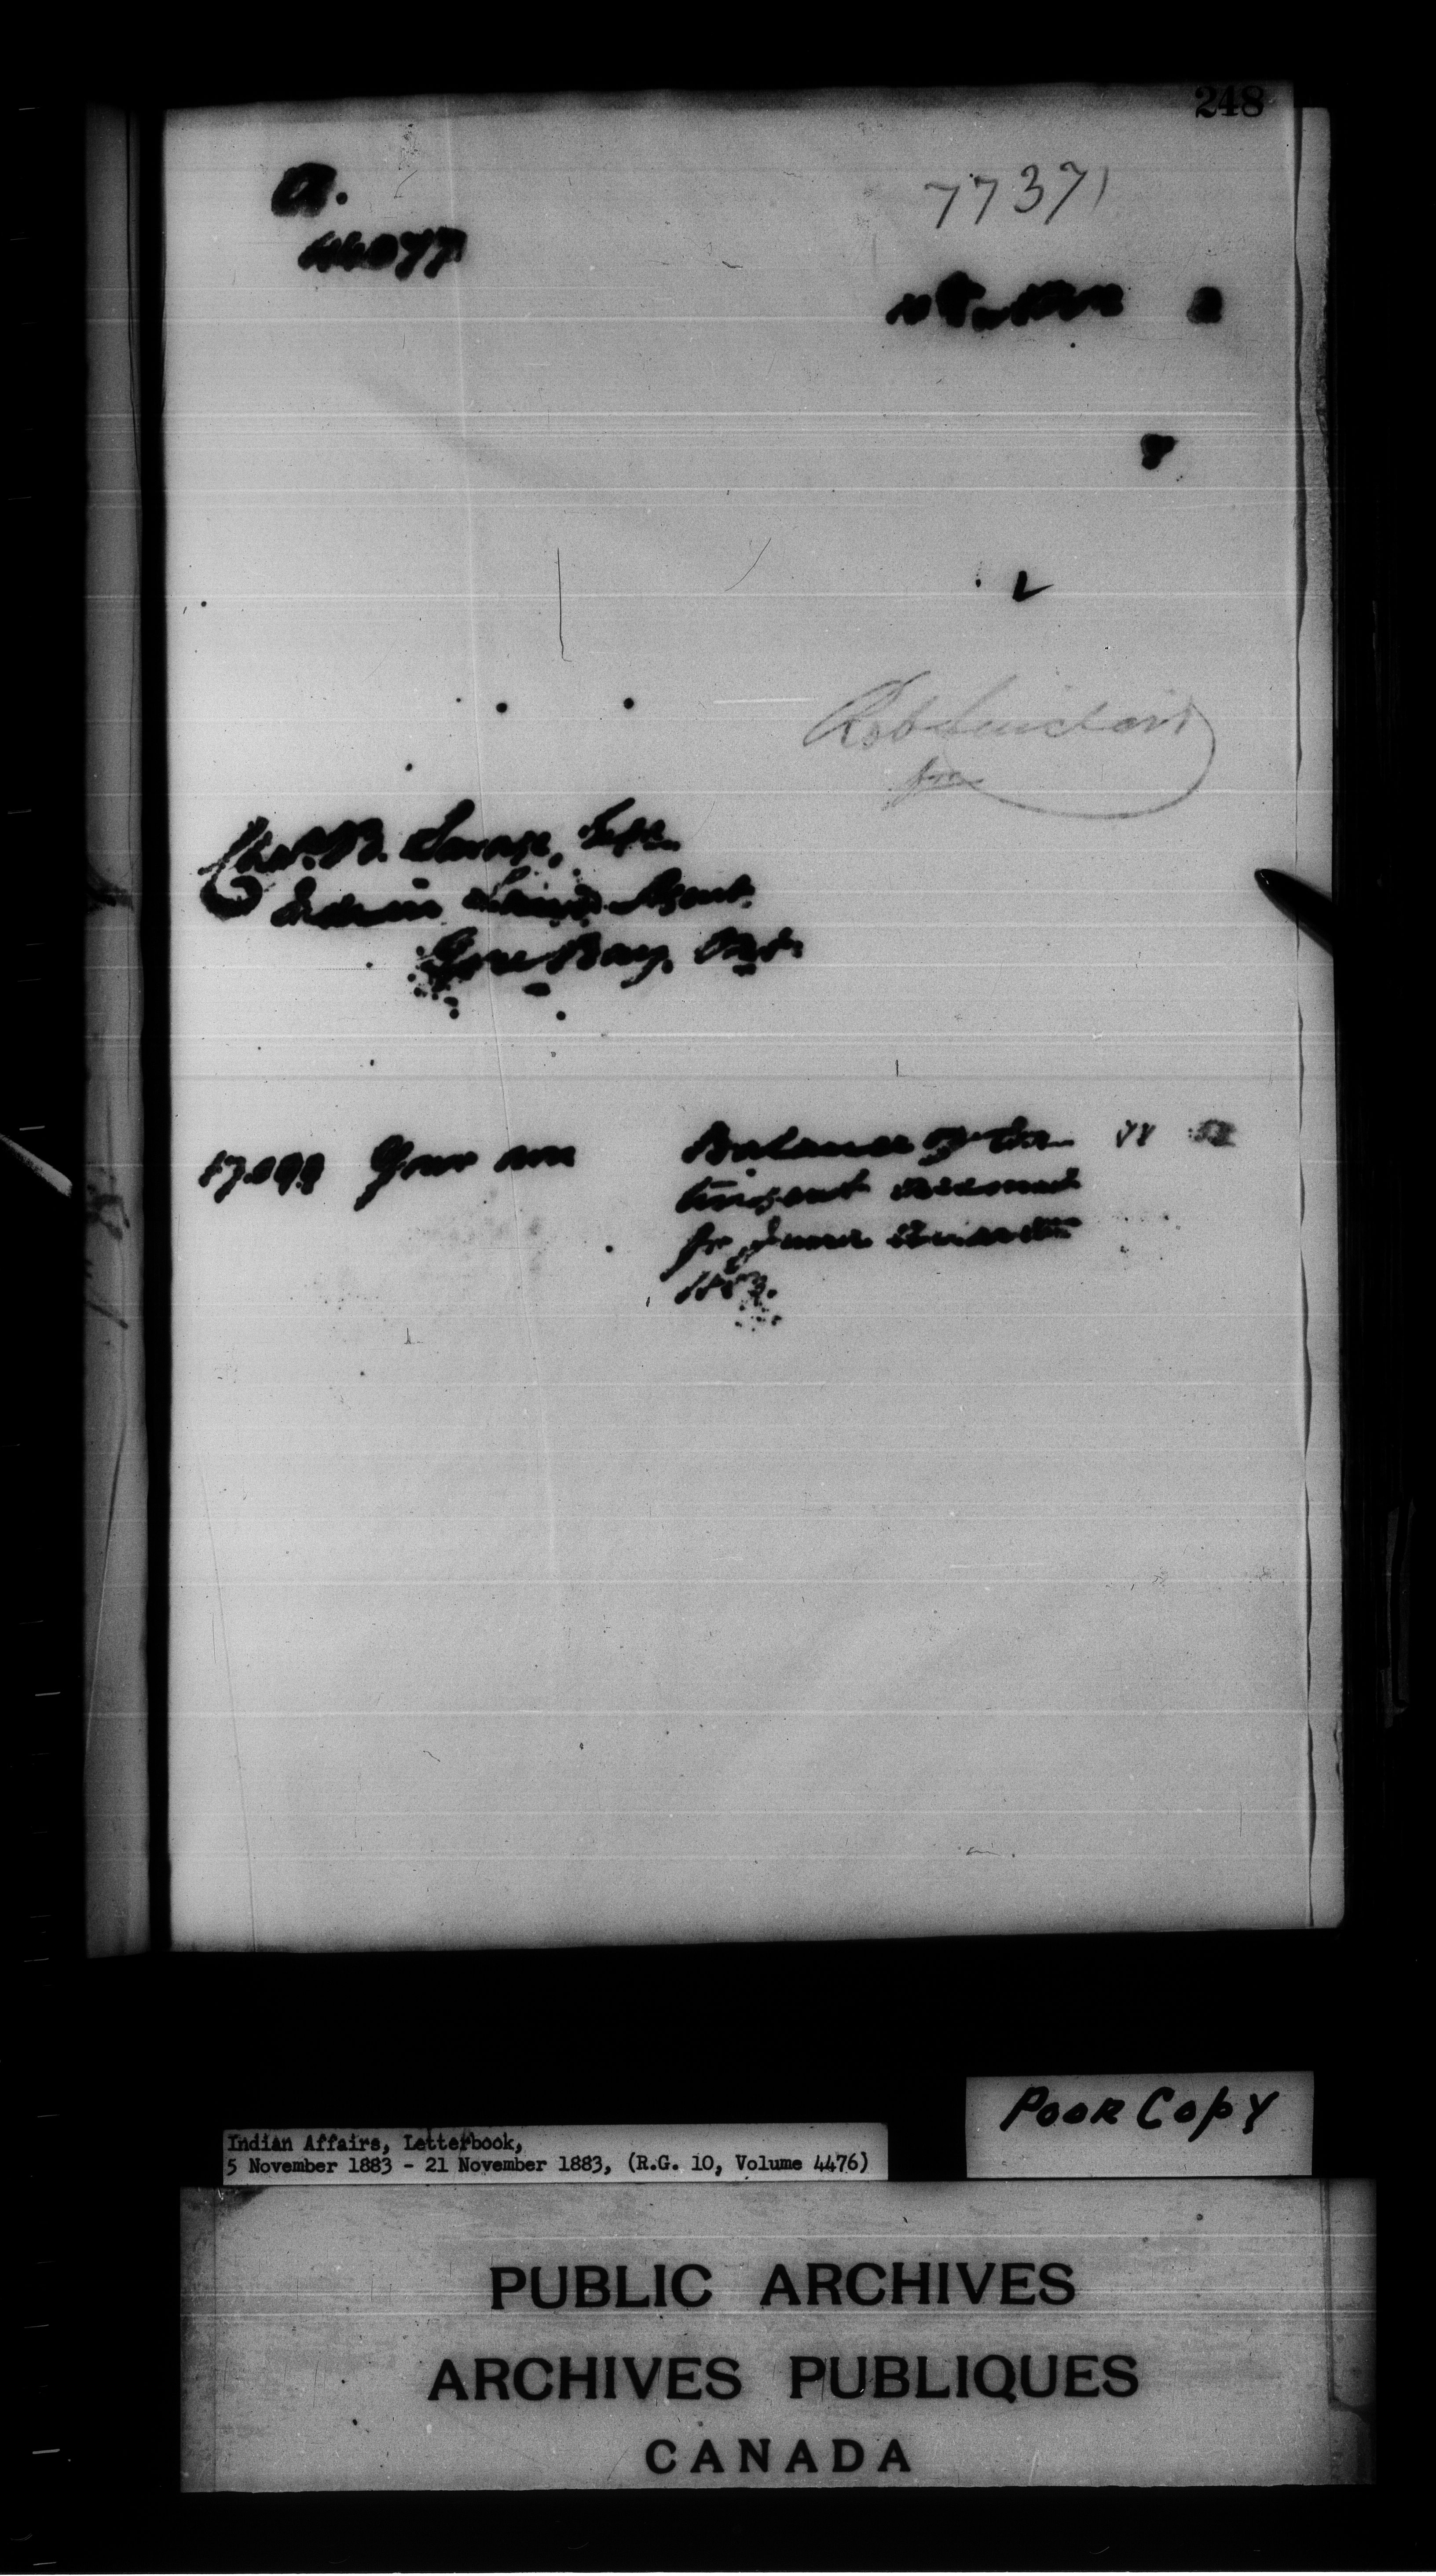 248
a.
77371
44077
Rob Sinclair
for
Chas. B. Savage, Esqr.
Indian Land Agent
Gore Bay, Ont.
Your own
Balance of Con
tingent Account
for June Quarter
1883.
Indian Affairs, Letterbook,
5 November 1883 - 21 November 1883, (R.G. 10, Volume 4476)
Poor Copy
PUBLIC ARCHIVES
ARCHIVES PUBLIQUES
CANADA